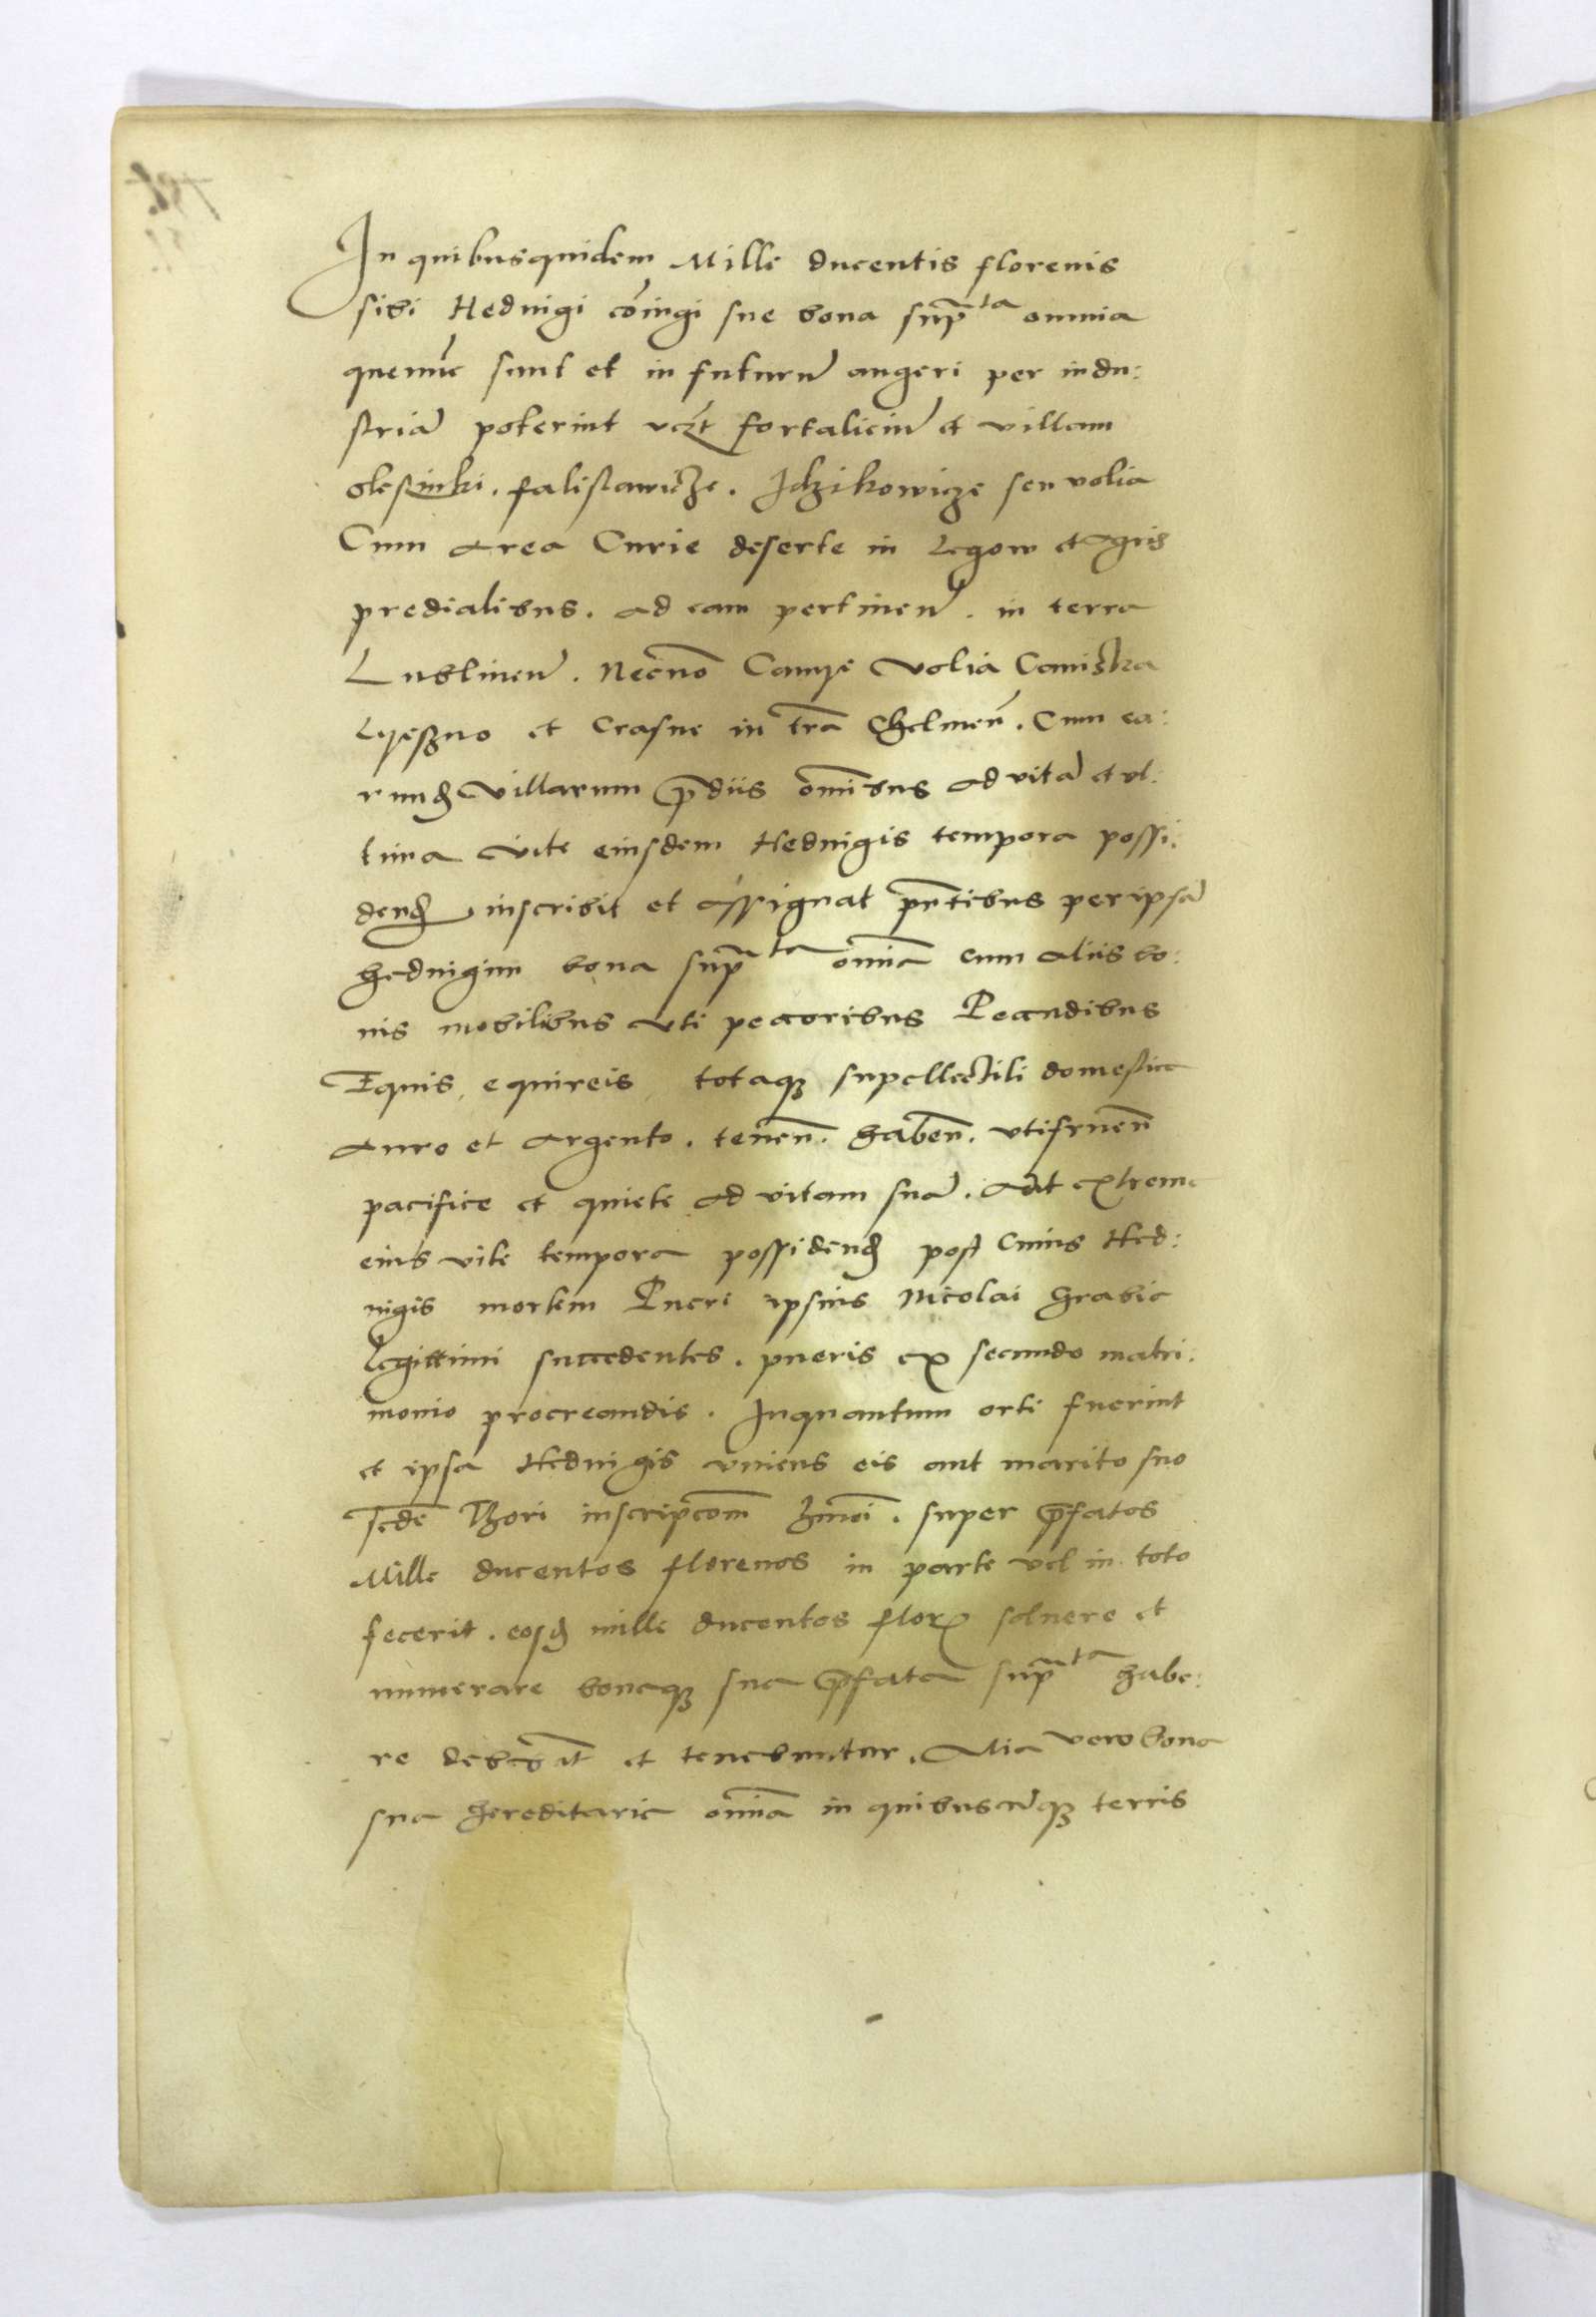 In quibusquidem Mille ducentis florenis
sibi Hedvigi cõiugi sue bona sup̃ta omnia
quenũc sunt et in futurũ augeri per indu:
striã poterint vcẓt fortaliciũ et villam
olesznki . falislawicze . Idzikowicze seu volia
Cum Area Curie deserte in Legow et Agris
predialibus . ad eam pertineñ . in terra
Lublineñ . Necnõ Campe Volia Caniska
et Crasne in tr̃a Chelmeñ . Cum ea:
rund villarum p̃diis om̃ibus ad vitã et vl:
tima vite eiusdem Hedvigis tempora possi:
dend inscribit et assignat pñtibus per ipsã
hedvigim bona sup̃ta om̃ia cum aliis bo:
nis mobilibus vti pecoribus Pecudibus
Equis, equireis totaqȝ supellectili domestica
Auro et Argento . teneñ . habeñ . vtifrueñ
pacifice et quiete ad vitam suã . Adt extrema
eius vite tempora possidend post cuius Hed:
vigis mortem Pueri ipsius Nicolai hrabie
legittimi succedentes . pueris ex secundo matri:
monio procreandis . Inquantum orti fuerint
et ipsa Hedvigis viuens eis aut marito suo
Scde Thori inscripcom̃ . super p̃fatos
Mille ducentos florenos in parte vel in toto
fecerit . eosd mille ducentos flor soluere et
numerare bonaqȝ sua p̃fata sup̃ta habe:
re deb̃ũt et tenebuntur . Alia vero bona
sua hereditaria om̃ia in quibuscũqȝ terris